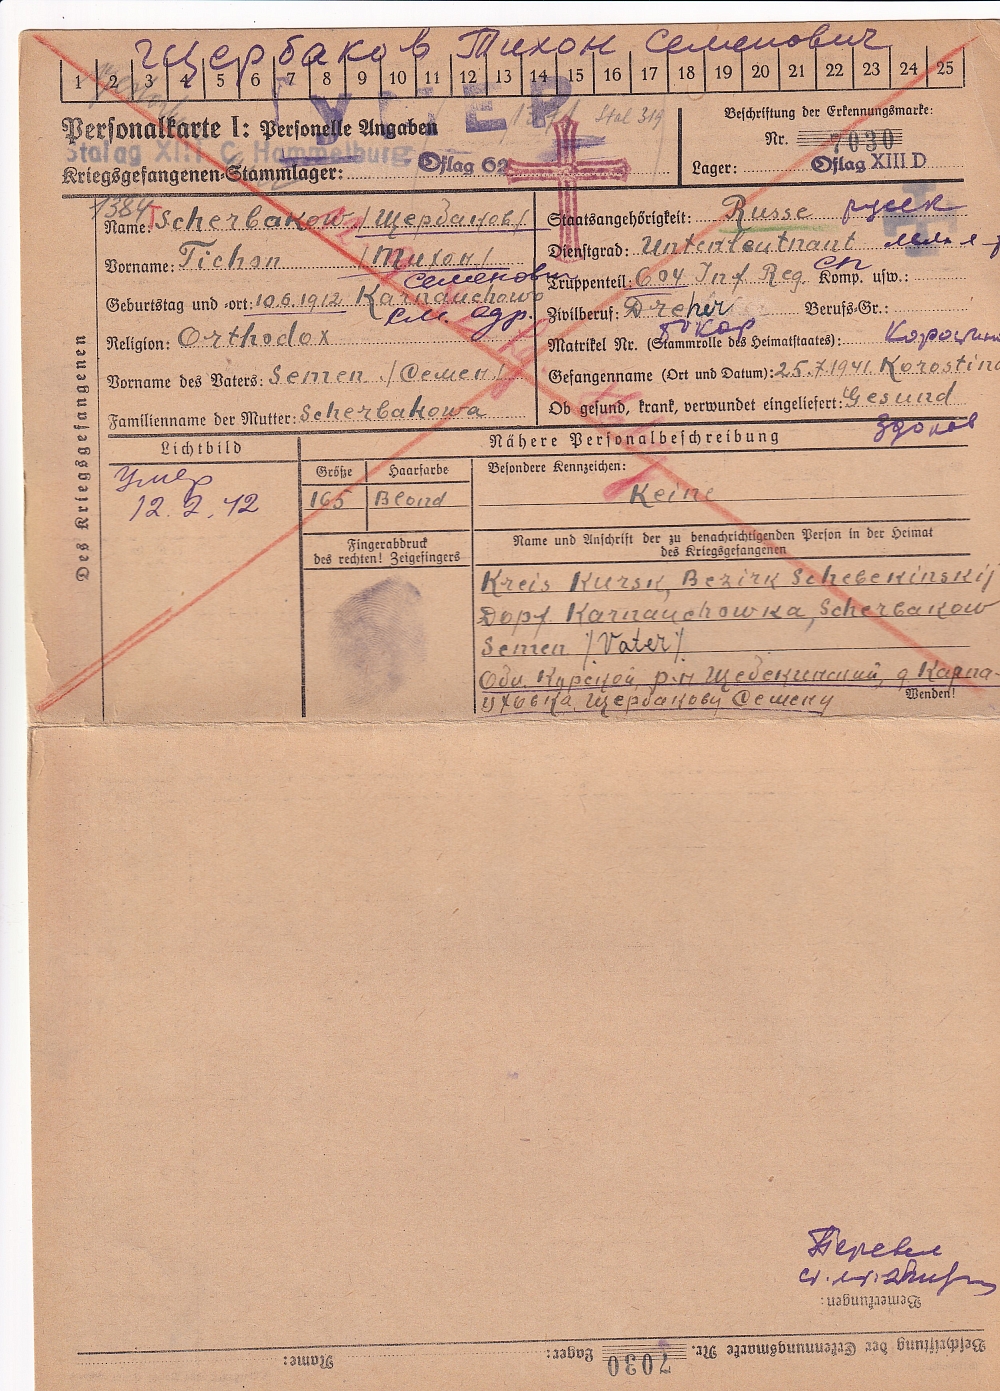 Щербаков Тихон Семенович
1 2 3 4 5 6 7 8 9 10 11 12 13 14 15 16 17 18 19 20 21 22 23 24 25
УМЕР
Stal 319
Personalkarte I: Personelle Angaben
Beschriftung der Erkennungsmarke:
Nr. 7030
Stalag XIII C Hammelburg
Kriegsgefangenen-Stammlager: Oflag 62
Lager: Oflag XIII D
1384
Des Kriegsgefangenen
Name: Tscherbakow /Щербаков/
Staatsangehörigkeit: Russe русск
Vorname: Tichon /Тихон/
Семенович
Dienstgrad: Unterleutnant
Truppenteil: 604 Inf Reg. Komp. usw.:
сп
Geburtstag und -ort: 10.6.1912 Karnauchowo
см. адр.
Zivilberuf: Dreher Berufs-Gr.:
токар
Religion: Orthodox
Matrikel Nr. (Stammrolle des Heimatstaates):
Vorname des Vaters: Semen /Семен/
Gefangenname (Ort und Datum): 25.7.1941 Korostino
Familienname der Mutter: Scherbakowa
Ob gesund, krank, verwundet eingeliefert: Gesund
здоров
Lichtbild
Nähere Personalbeschreibung
Умер
12.2.42
Größe
Haarfarbe
Besondere Kennzeichen:
165
Blond
Keine
Fingerabdruck
des rechten! Zeigefingers
Name und Anschrift der zu benachrichtigenden Person in der Heimat
des Kriegsgefangenen
Kreis Kursk, Bezirk Schebekinskij
Dopf Karnauchowka, Scherbakow
Semen /Vater/
Обл. Курской, р-н Щебекинский, д Карна-
уховка, Щербакову Семену
Wenden!
Перевел
Bemerkungen:
Name:
Beschriftung der Erkennungsmarke Nr. 7030 Lager: